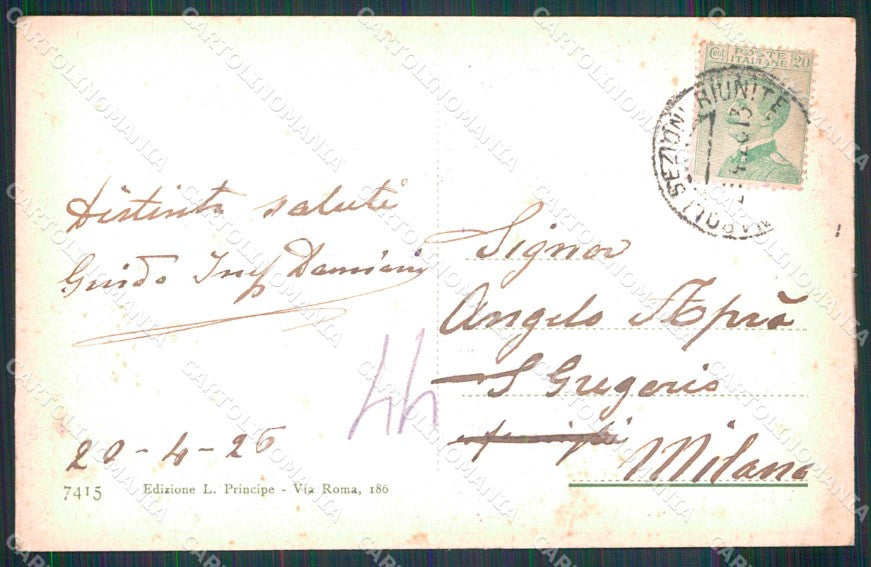 Cmi 20
POSTE
ITALIANE
NAPOLI SEZIONI RIUNITE
Distinti saluti
Guido Ing Damiani
20-4-26
7415 Edizione L. Principe - Via Roma, 186
Signor
Angelo Aprà
S Gregorio
Milano
44
CARTOLINOMANIA